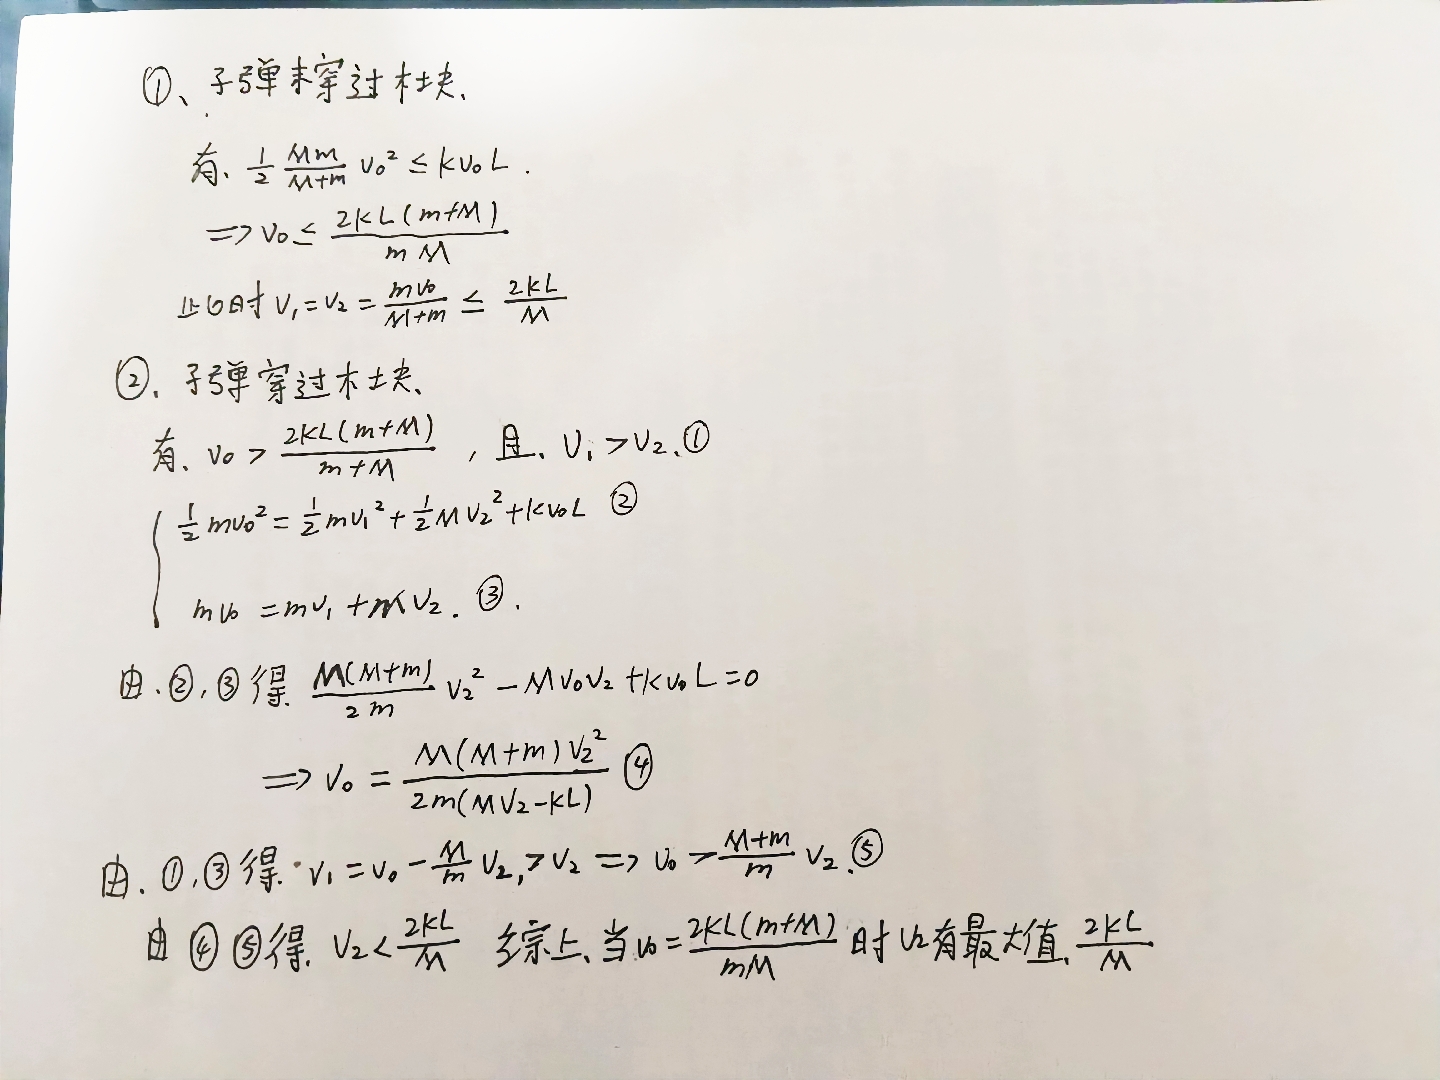 ①、子弹未穿过木块、
有、$\frac{1}{2}\frac{Mm}{M+m}v_0^2 \leq kv_0L$.
$\Rightarrow v_0 \leq \frac{2kL(m+M)}{mM}$
此时 $v_1=v_2=\frac{mv_0}{M+m} \leq \frac{2kL}{M}$
②、子弹穿过木块、
有、$v_0 > \frac{2kL(m+M)}{m+M}$,且、$v_1>v_2$、①
$\frac{1}{2}mv_0^2=\frac{1}{2}mv_1^2+\frac{1}{2}Mv_2^2+kv_0L$ ②
$mv_0=mv_1+Mv_2$. ③.
由、②,③得 $\frac{M(M+m)}{2m}v_2^2-Mv_0v_2+kv_0L=0$
$\Rightarrow v_0=\frac{M(M+m)v_2^2}{2m(Mv_2-kL)}$ ④
由、①,③得、$v_1=v_0-\frac{M}{m}v_2,>v_2 \Rightarrow v_0>\frac{M+m}{m}v_2$.⑤
由④⑤得、$v_2<\frac{2kL}{M}$ 综上、当$v_0=\frac{2kL(m+M)}{mM}$时$v_2$有最大值、$\frac{2kL}{M}$